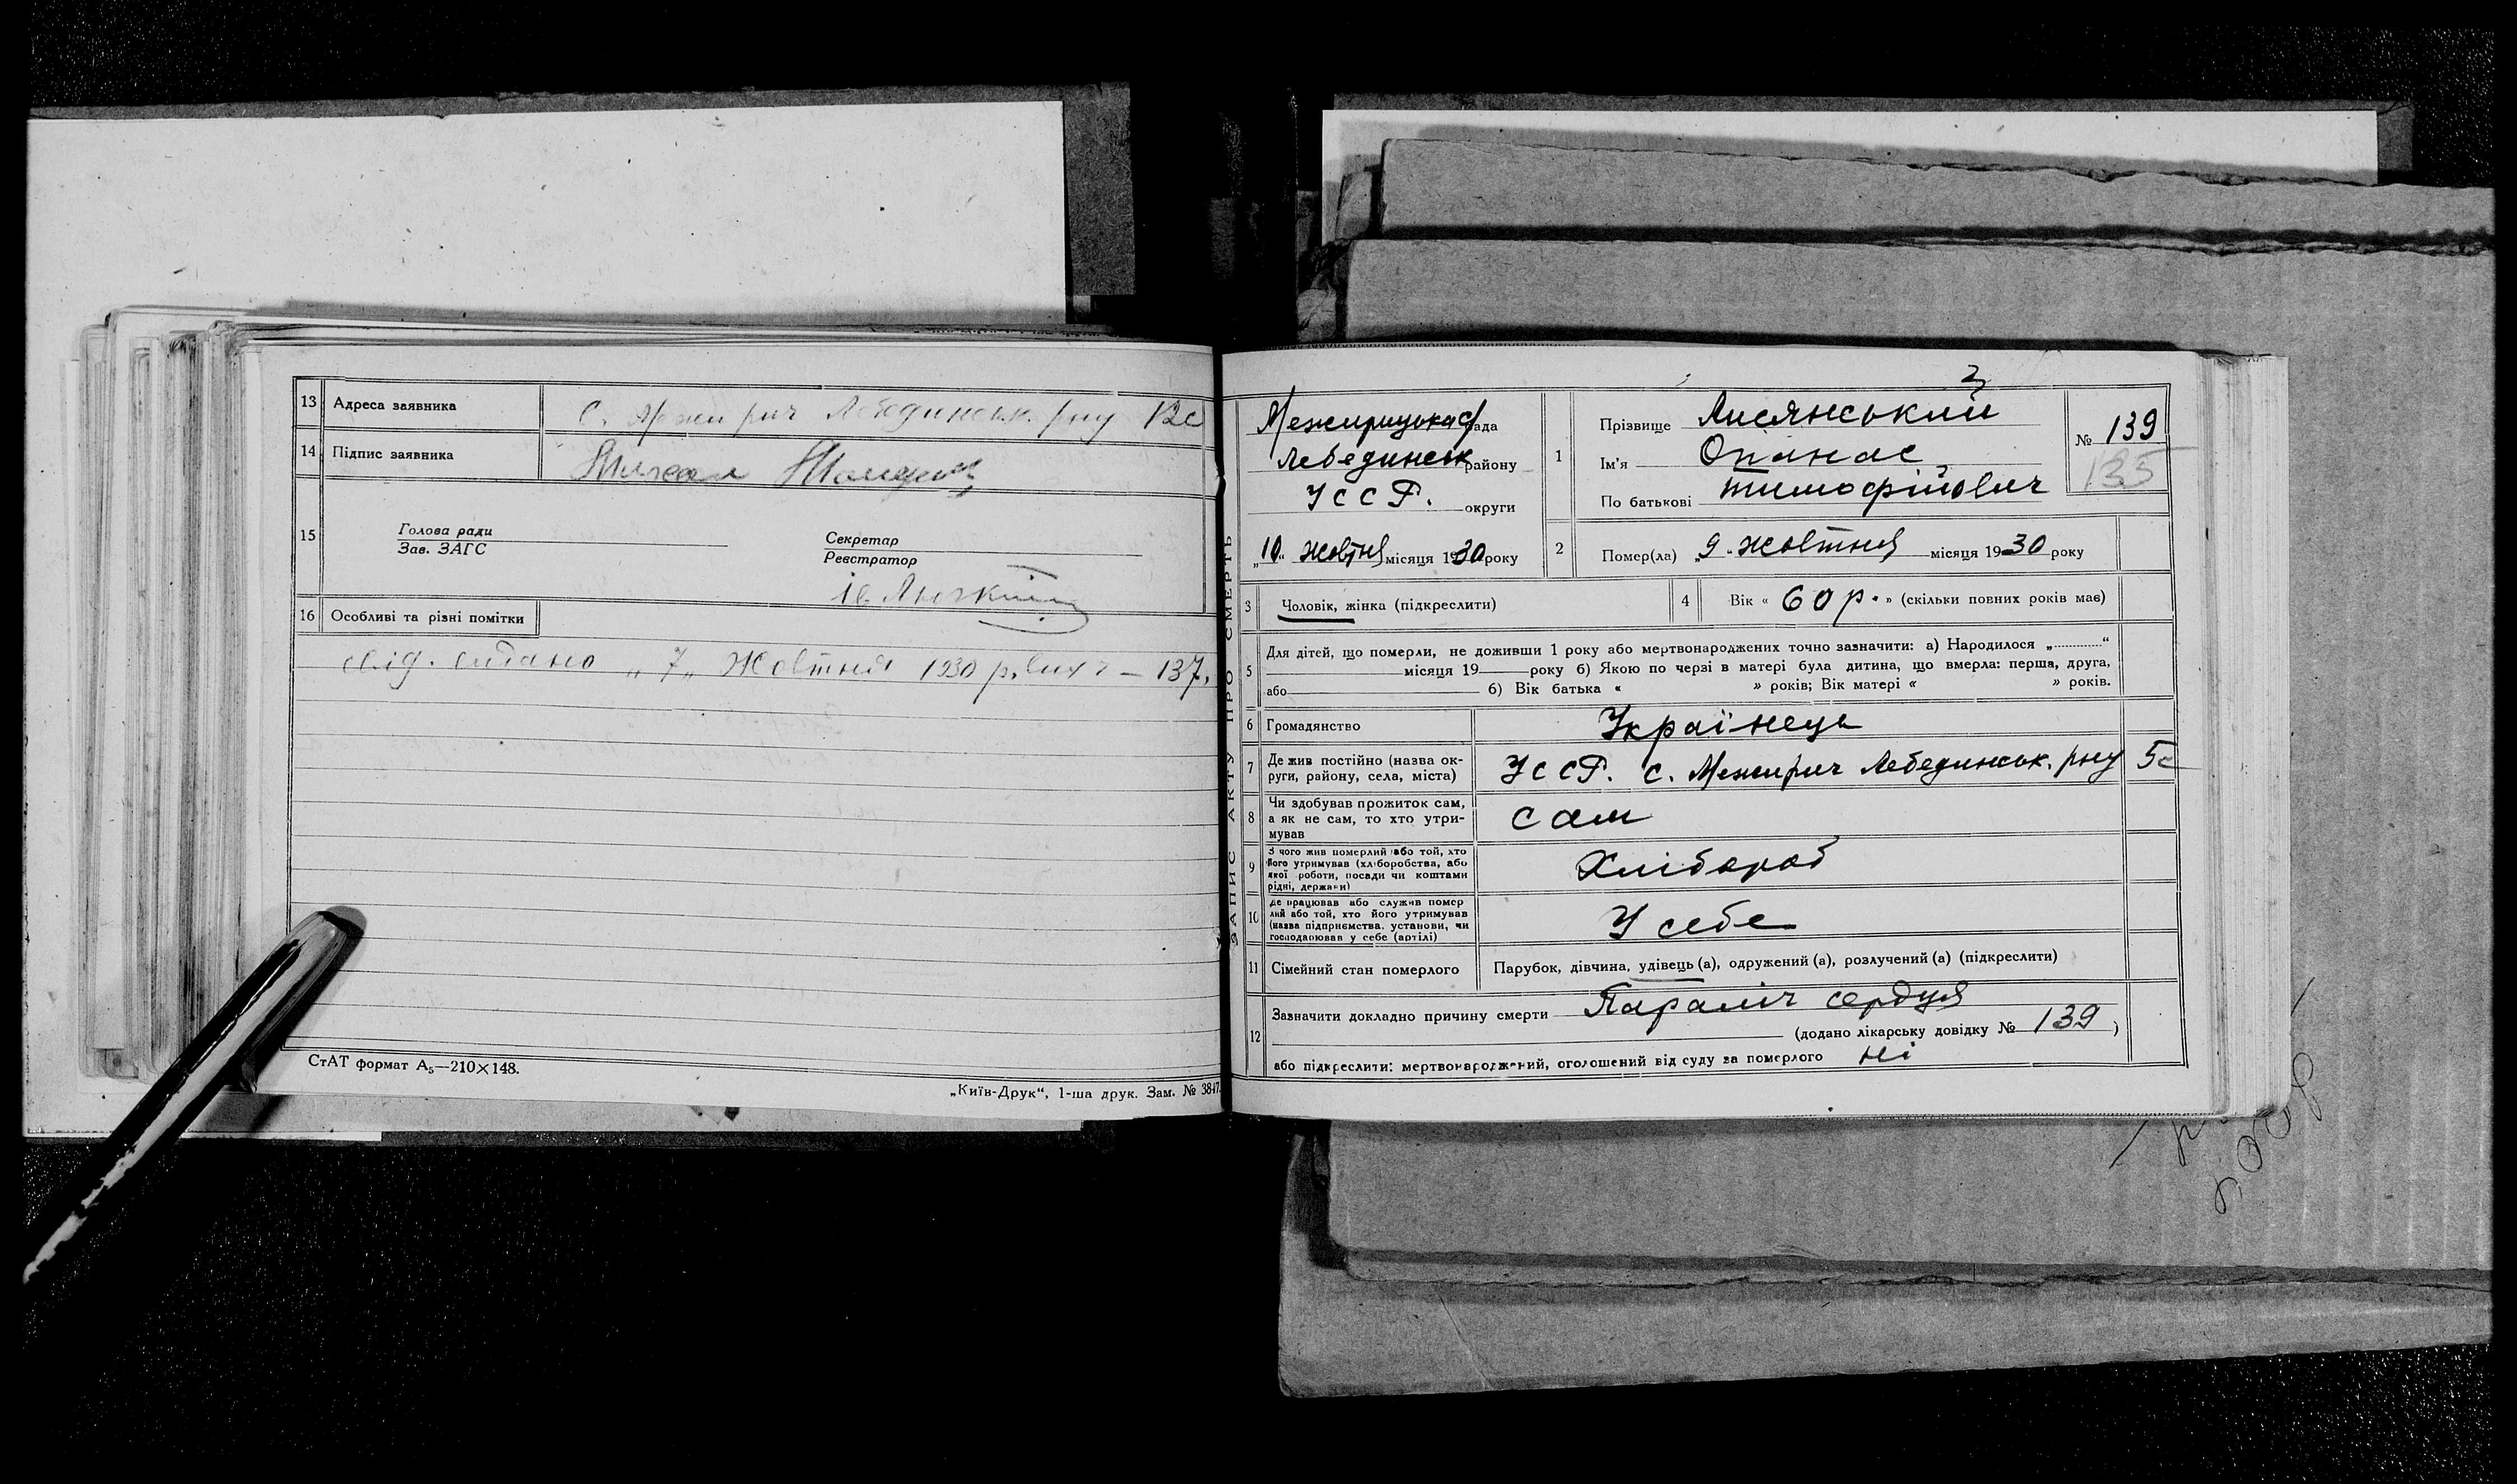 13 Адреса заявника с. Межирич Лебединськ. рну 12с
14 Підпис заявника
15 Голова ради
Зав. ЗАГС
Секретар
Реєстратор
16 Особливі та різні помітки
свід. видано „7„ Жовтня 1930 р. вих ч – 137.
СтАТ формат А₅—210×148.
„Київ-Друк“, 1-ша друк. Зам. № 3847
ЗАПИС АКТУ ПРО СМЕРТЬ
Межирицька с/рада
Лебединськ району
УССР. округи
„10“ Жовтня місяця 1930 року
1 Прізвище Лисянський
Ім'я Опанас
По батькові Тимофійович
№ 139
135
2 Помер(ла) „9„ Жовтня місяця 1930 року
3 Чоловік, жінка (підкреслити)
4 Вік « 60 р. » (скільки повних років має)
5 Для дітей, що померли, не доживши 1 року або мертвонароджених точно зазначити: а) Народилося „..........“
місяця 19 року б) Якою по черзі в матері була дитина, що вмерла: перша, друга,
або б) Вік батька « » років; Вік матері « » років.
6 Громадянство Українець
7 Де жив постійно (назва ок-
руги, району, села, міста) УССР. с. Межирич Лебединськ. рну 5с
8 Чи здобував прожиток сам,
а як не сам, то хто утри-
мував сам
9 З чого жив померлий або той, хто
його утримував (хліборобства, або
якої роботи, посади чи коштами
рідні, держави) Хлібороб
10 Де працював або служив помер
лий або той, хто його утримував
(назва підприємства, установи, чи
господарював у себе (артілі) У себе
11 Сімейний стан померлого Парубок, дівчина, удівець (а), одружений (а), розлучений (а) (підкреслити)
12 Зазначити докладно причину смерти Параліч сердця
(додано лікарську довідку № 139 )
або підкреслити: мертвонароджений, оголошений від суду за померлого ні